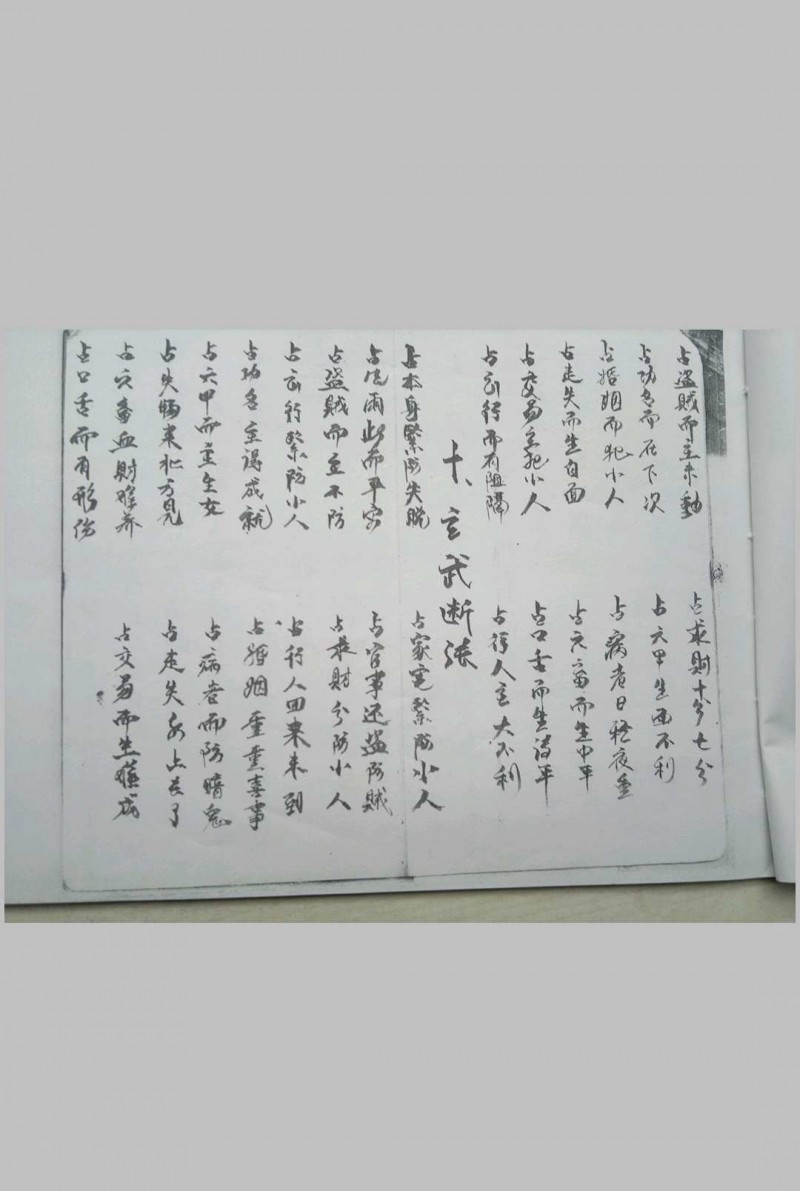 占盗賊而主未動
占求財十分七分
占功名而在下次
占六甲生画不利
占婚姻而犯小人
占病者日轻夜重
占走失而生自面
占六畜而生中平
占交易主犯小人
占口舌而生清平
占出行而有阻隔
占行人主大不利
十、玄武断法
占本身緊防失脱
占家宅緊防小人
占風雨此而平安
占官事还盗防贼
占盗賊而主不防
占求財分防小人
占出行緊防小人
占行人回来未到
占功名主得成就
占婚姻重重喜事
占六甲而主生女
占病者而防暗鬼
占失物来北方見
占走失水上去了
占六畜血財难养
占交易而生难成
占口舌而有形伤